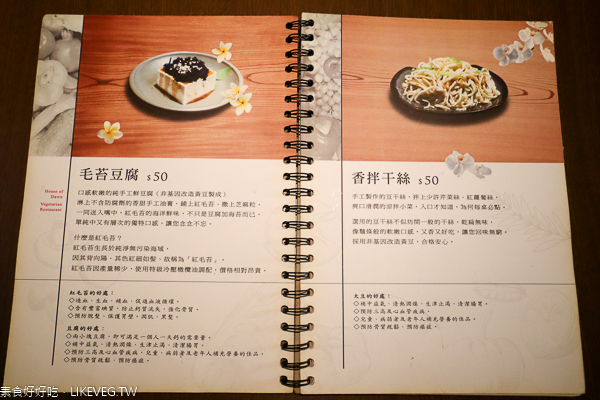 毛苔豆腐 $50
House of
Dawn
Vegetarian
Restaurant
口感軟嫩的純手工鮮豆腐（非基因改造黃豆製成）
淋上不含防腐劑的香甜手工油膏，鋪上紅毛苔，撒上芝麻粒，
一同送入嘴中，紅毛苔的海洋鮮味，不只是豆腐加海苔而已，
單純中又有層次的獨特口感，讓您念念不忘。
什麼是紅毛苔？
紅毛苔生長於純淨無污染海域，
因其背向陽，其色紅細如髮，故稱為「紅毛苔」。
紅毛苔因產量稀少，使用特級冷壓橄欖油調配，價格相對昂貴。
紅毛苔的好處：
◇造血、生血、補血、促進血液循環。
◇含有豐富碘質，防止鈣質流失，強化骨質。
◇預防脫髮、保護胃壁、潤肌、黑髮。
豆腐的好處：
◇兩小塊豆腐，即可滿足一個人一天鈣的需要量。
◇補中益氣、清熱潤燥、生津止渴、清潔腸胃。
◇預防三高及心血管疾病，兒童、病弱者及老年人補充營養的佳品。
◇預防骨質疏鬆、預防癌症。
香拌干絲 $50
手工製作的豆干絲，拌上少許芹菜絲、紅蘿蔔絲，
爽口滑潤的涼拌小菜，入口才知道，為何每桌必點。
選用的豆干絲不似坊間一般的干絲，乾扁無味，
像麵條般的軟嫩口感，又香又好吃，讓您回味無窮。
採用非基因改造黃豆，合格安心。
大豆的好處：
◇補中益氣、清熱潤燥、生津止渴、清潔腸胃。
◇預防三高及心血管疾病。
◇兒童、病弱者及老年人補充營養的佳品。
◇預防骨質疏鬆、預防癌症。
素食好好吃．LIKEVEG.TW